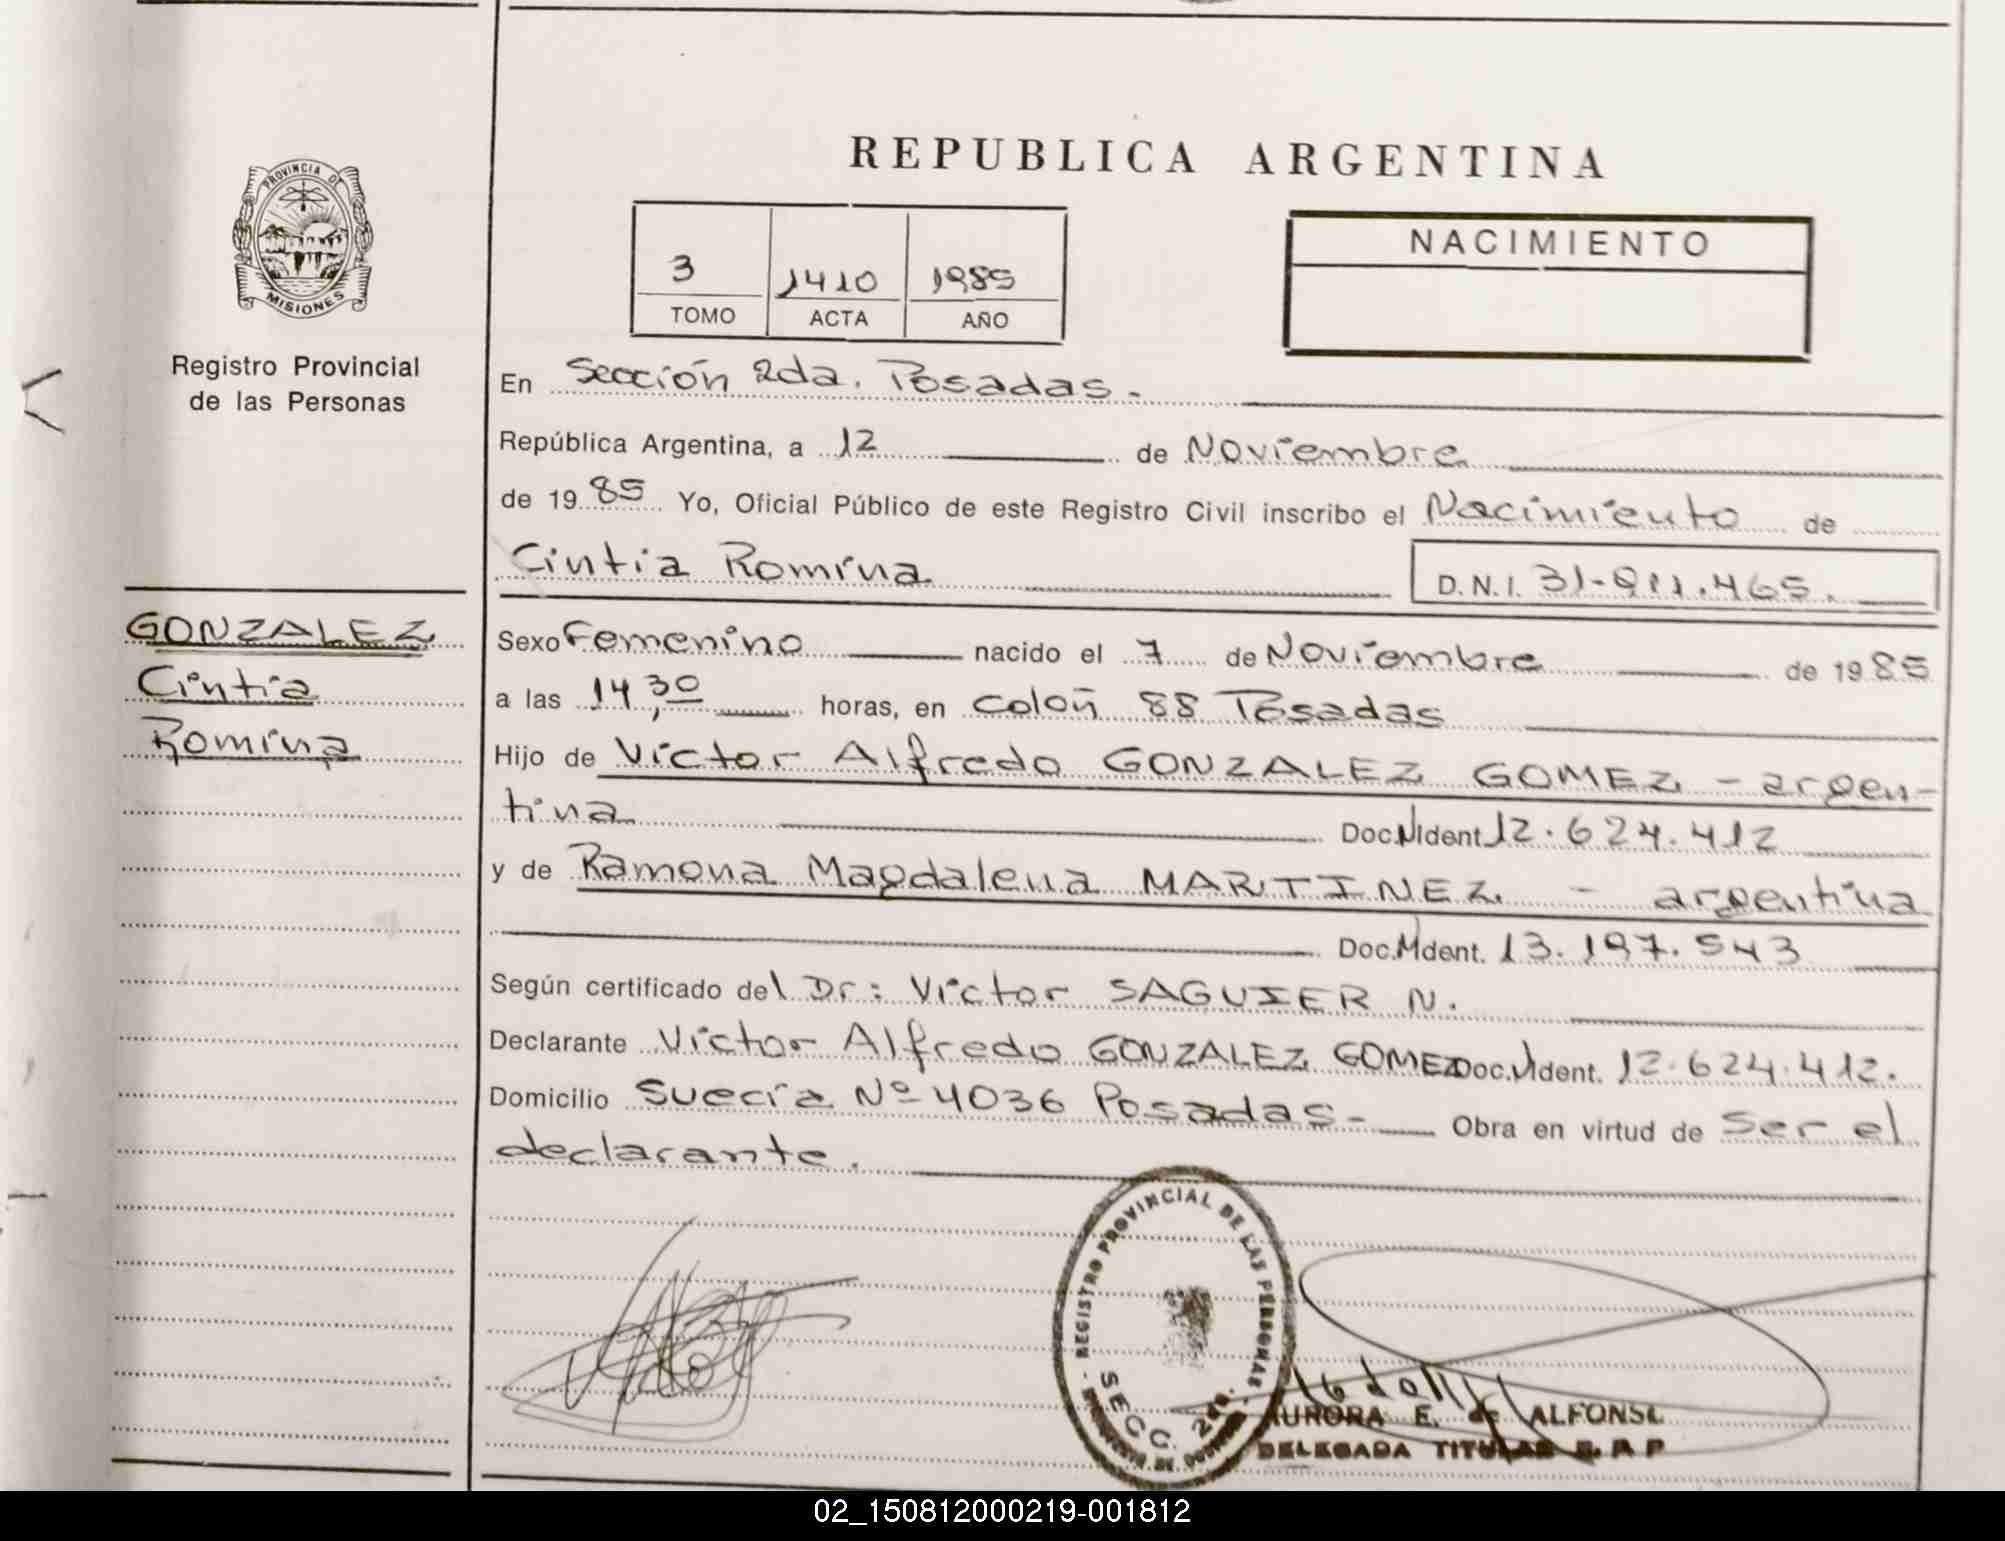 REPUBLICA ARGENTINA
PROVINCIA DE
MISIONES
Registro Provincial
de las Personas
3 1410 1985
TOMO ACTA AÑO
NACIMIENTO
En Sección 2da. Posadas.
República Argentina, a 12 de Noviembre
de 1985 Yo, Oficial Público de este Registro Civil inscribo el Nacimiento de
Cintia Romina
D.N.I. 31.911.465.
GONZALEZ
Cintia
Romina
Sexo Femenino nacido el 7 de Noviembre de 1985
a las 14,30 horas, en Colón 88 Posadas
Hijo de Víctor Alfredo GONZALEZ GOMEZ - argen-
tina Doc.N.Ident. 12.624.412
y de Ramona Magdalena MARTINEZ - argentina
Doc.N.Ident. 13.197.543
Según certificado del Dr: Víctor SAGUIER N.
Declarante Víctor Alfredo GONZALEZ GOMEZ Doc.N.Ident. 12.624.412.
Domicilio Suecia Nº 4036 Posadas- Obra en virtud de ser el
declarante.
REGISTRO PROVINCIAL DE LAS PERSONAS
SECC. 2da.
AURORA E. de ALFONSO
DELEGADA TITULAR R. P. P
02_150812000219-001812